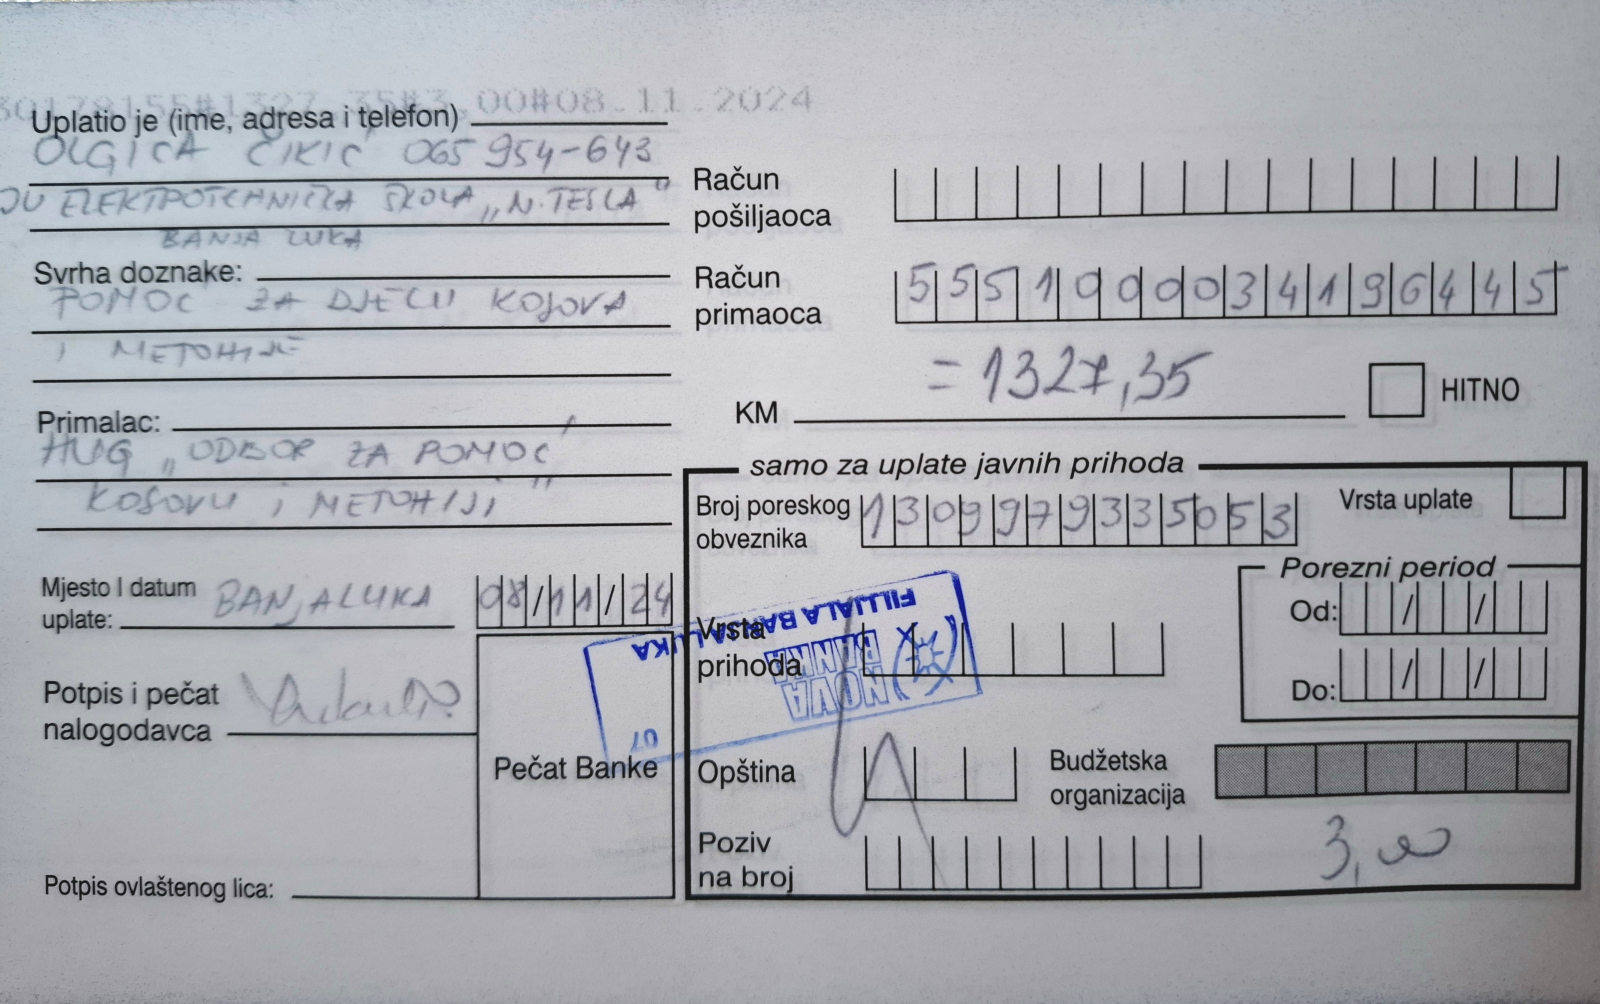 30178155#1327.35#3.00#08.11.2024
Uplatio je (ime, adresa i telefon)
OLGICA ČIKIĆ 065 954-643
JU ELEKTROTEHNIČKA ŠKOLA „N.TESLA"
BANJA LUKA
Svrha doznake:
POMOĆ ZA DJECU KOSOVA
I METOHIJE
Primalac:
HUG „ODBOR ZA POMOĆ
KOSOVU I METOHIJI"
Mjesto I datum
uplate: BANJALUKA 08/11/24
Potpis i pečat
nalogodavca
Pečat Banke
Potpis ovlaštenog lica:
Račun
pošiljaoca
Račun
primaoca 5551000034196445
KM = 1327,35
HITNO
samo za uplate javnih prihoda
Broj poreskog
obveznika 1309979335053
Vrsta uplate
Vrsta
prihoda
Porezni period
Od: / /
Do: / /
Opština
Budžetska
organizacija
Poziv
na broj
3,00
NOVA
BANKA
FILIJALA BANJA LUKA
07